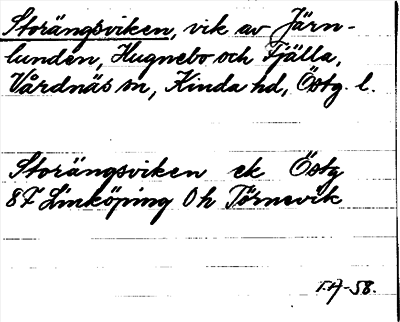 Storängsviken, vik av Järn-
lunden, Hugnebo och Fjälla,
Vårdnäs sn, Kinda hd, Östg. l.
Storängsviken ek Östg
8F Linköping 0h Törnevik
T.A-58.